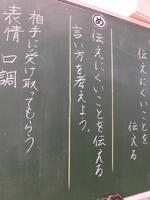 伝えにくいことを
伝える
め
伝えにくいことを伝える
言い方を考えよう。
相手に受け取ってもらう
表情 口調